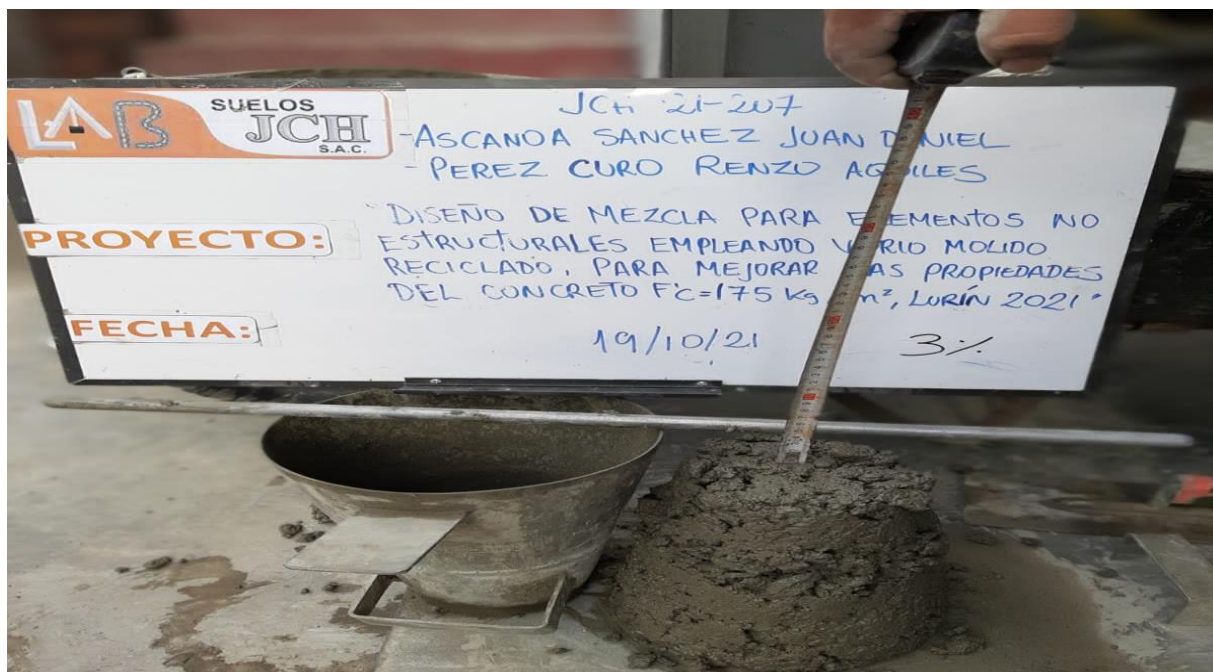 LAB
SUELOS
JCH
S.A.C.
JCH 21-207
- ASCANOA SANCHEZ JUAN D NIEL
- PEREZ CURO RENZO AQUILES
"DISEÑO DE MEZCLA PARA E EMENTOS NO
PROYECTO:
ESTRUCTURALES EMPLEANDO V RIO MOLIDO
RECICLADO, PARA MEJORAR AS PROPIEDADES
DEL CONCRETO F'C=175 Kg m², LURÍN 2021"
FECHA:
19/10/21
3%